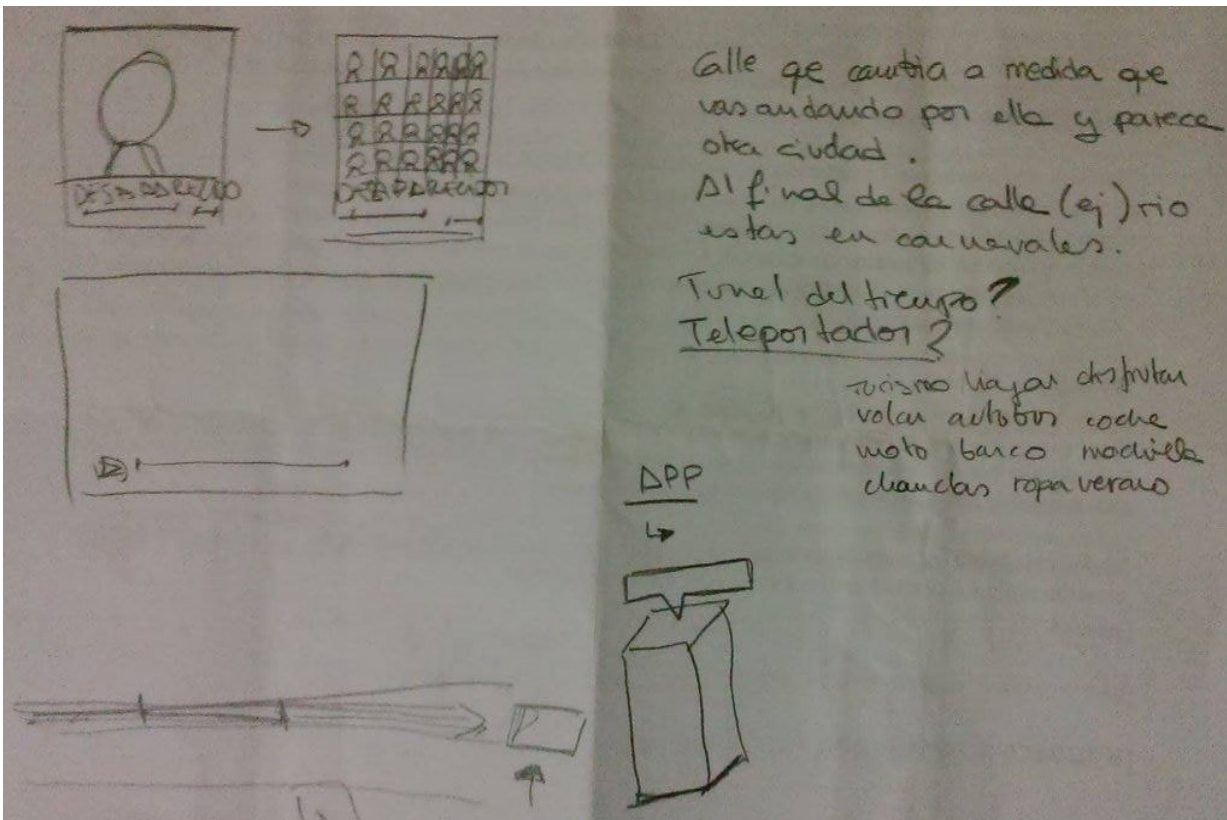 DESAPARECIDO
DESAPARECIDOS
Calle qe cambia a medida que
vas andando por ella y parece
otra ciudad.
Al final de la calle (ej) rio
estas en carnavales.
Tunel del tiempo?
Teleportador?
Turismo viajar disfrutar
volar autobus coche
moto barco mochila
chanclas ropa verano
APP